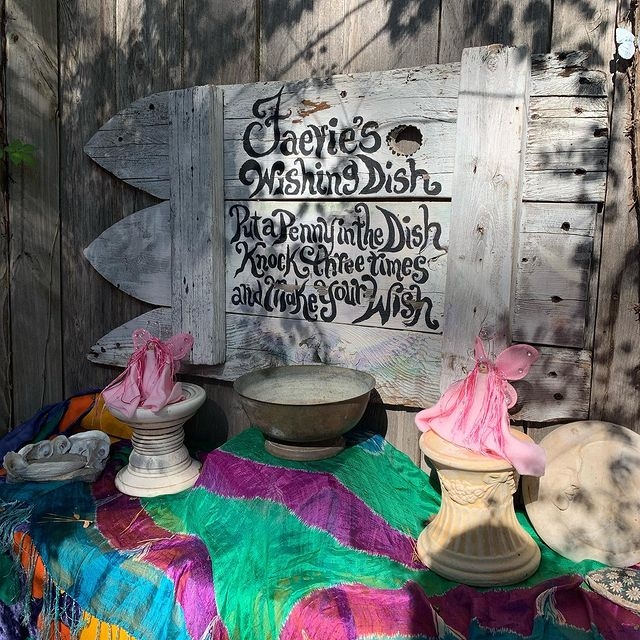 Faerie's
Wishing Dish
Put a Penny in the Dish
Knock three times
and Make Your Wish